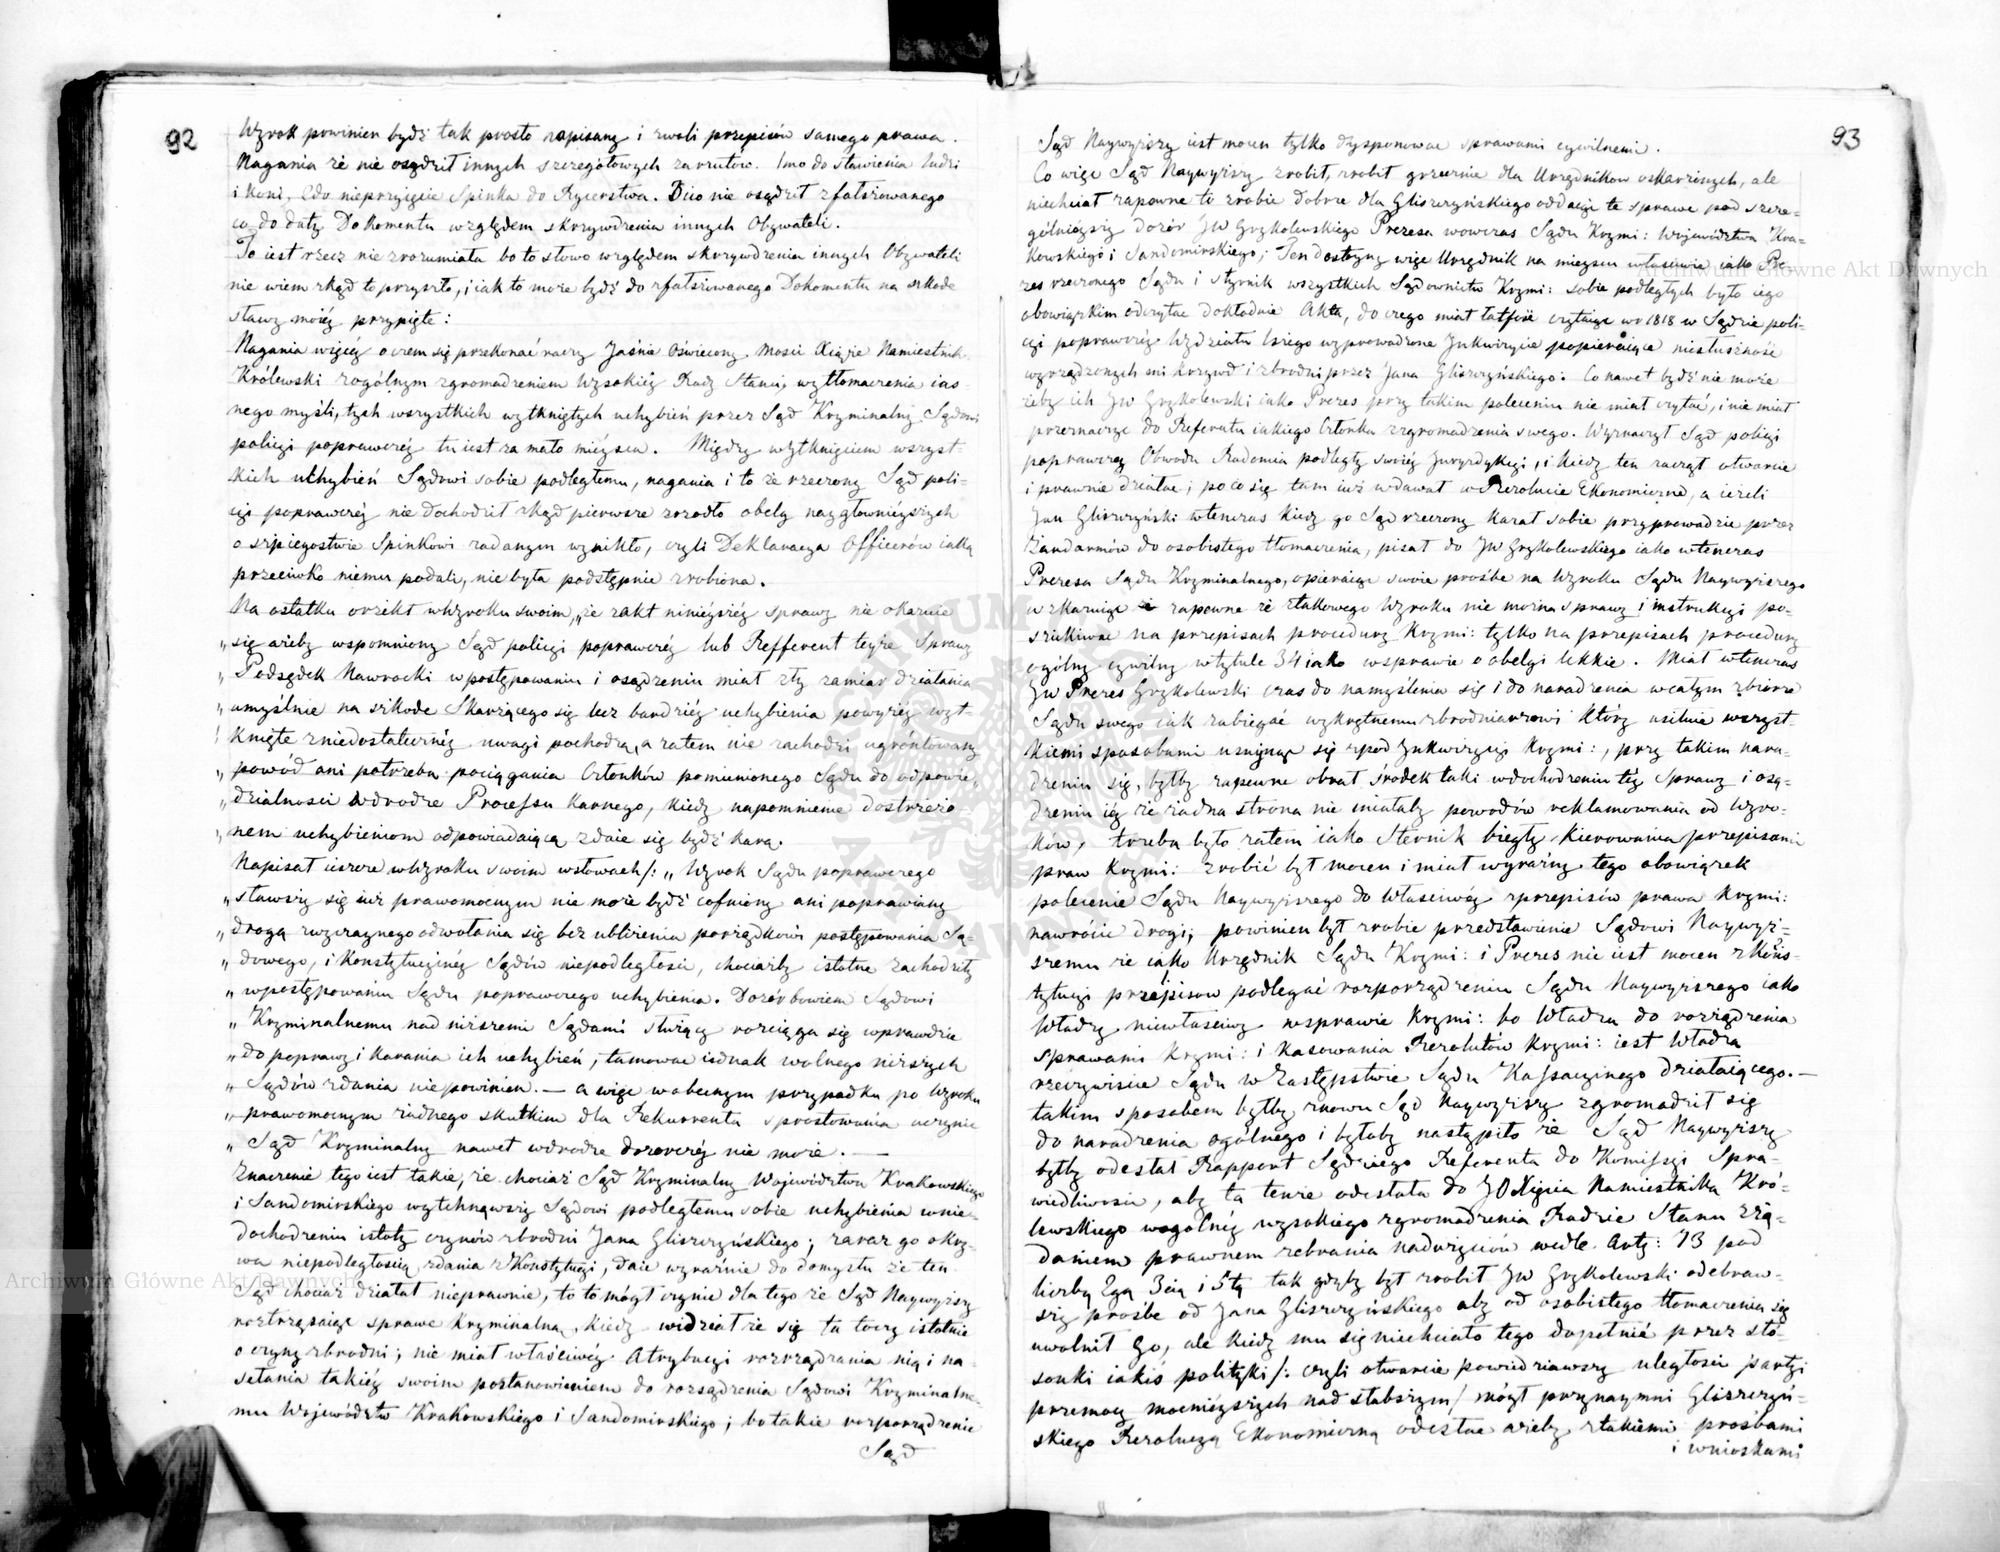 92
Wyrok powinien bydź tak prosto napisany i z woli przepisów samego prawa.
Nagania że nie osądził innych szczegółowych zarzutów. 1mo do stawienia ludzi
i koni, 2do nieprzyięcie Spinka do Rycerstwa. Duo nie osądził zfałszowanego
co do daty Dokomentu względem skrzywdzenia innych Obywateli.
To iest rzecz nie zrozumiała bo to słowo względem skrzywdzenia innych Obywateli
nie wiem skąd to przyszło, i iak to może bydź do zfałszowanego Dokomentu na szkode
sławy moiéy przypięte:
Nagania więcéy o czem się przekonać raczy Jaśnie Oświecony Mości Xiąże Namiestnik
Królewski z ogólnym zgromadzeniem Wysokiéy Rady Stanu, wytłomaczenia ias-
nego myśli, tych wszystkich wytkniętych uchybień przez Sąd Kryminalny Sądowi
policyi poprawczéy tu iest za mało miéysca. Między wytknięciem wszyst-
kich uchybień Sądowi sobie podległemu, nagania i to że rzeczony Sąd poli-
cyi poprawczéy nie dochodził skąd pierwsze zrzodło obelg naygłownieyszych
o szpiegostwie Spinkowi zadanym wynikło, czyli Deklaracya Officerów iaką
przeciwko niemu podali, nie była podstępnie zrobiona.
Na ostatku orzekł w Wyroku swoim, „że z akt niniéyszéy sprawy nie okazuie
„ się ażeby wspomniony Sąd policyi poprawczéy lub Refferent teyże Sprawy
„ Podsędek Nawrocki w postępowaniu i osądzeniu miał zły zamiar działania
„ umyślnie na szkode Skarżącego się lecz bardziéy uchybienia powyżéy wyt-
„ knięte z niedostateczniéy uwagi pochodzą, a zatem nie zachodzi ugróntowany
„ powód ani potrzeba pociągania Członków pomienionego Sądu do odpowie-
„ dzialności w drodze Processu karnego, kiedy napomnienie dostrzeżo-
„ nem uchybieniom odpowiadaiącą zdaie się bydź karą.
Napisał ieszcze w Wyroku swoim w słowach /: „ Wyrok Sądu poprawczego
„ stawszy się iuż prawomocnym nie może bydź cofniony ani poprawiany
„ drogą zwyczaynego odwołania się bez ubliżenia porządkowi postępowania Są-
„ dowego, i Konstytucyinéy Sądów niepodległości, chociażby istotne zachodziły
„ w postępowaniu Sądu poprawczego uchybienia. Dozór bowiem Sądowi
„ Kryminalnemu nad niższemi Sądami służący rozciąga się wprawdzie
„ do poprawy i karania ich uchybień, tamować iednak wolnego niższych
„ Sądów zdania nie powinien. — a więc w obecnym przypadku po Wyroku
„ prawomocnym żadnego skutkiem dla Rekurrenta sprostowania uczynić
„ Sąd Kryminalny nawet w drodze dozorczéy nie może. —
Znaczenie tego iest takie, że chociaż Sąd Kryminalny Województwa Krakowskiego
i Sandomirskiego wytchnąwszy Sądowi podległemu sobie uchybienia w nie-
dochodzeniu istoty czynów zbrodni Jana Gliszczyńskiego; zaraz go okry-
wa niepodległością zdania z Konstytucyi, daie wyraźnie do domysłu że ten
Sąd chociaż działał nieprawnie, to to mógł czynić dla tego że Sąd Naywyższy
roztrząsaiąc sprawe Kryminalną, kiedy widział że się tu toczy istotnie
o czyny zbrodni; nie miał właściwéy Atrybucyi rozrządzania nią i na-
słania takiéy swoim postanowieniem do rozsądzenia Sądowi Kryminalne-
mu Województw Krakowskiego i Sandomirskiego; bo takie rozporządzenie
Sąd
93
Sąd Naywyższy iest mocen tylko dysponować sprawami cywilnemi.
Co więc Sąd Naywyższy zrobił, zrobił grzecznie dla Urzędników oskarżonych, ale
niechciał zapewne to zrobić dobrze dla Gliszczyńskiego oddaiąc te sprawe pod szcze-
gólnieyszy dozór JW Grzkolewskiego Prezesa wówczas Sądu Krymi: Województwa Kra-
kowskiégo i Sandomirskiego; Ten dostoyny więc Urzędnik na mieyscu właściwie iako Pre-
zes rzeczonego Sądu i Styrnik wszystkich Sądownictw Krymi: sobie podległych było iego
obowiązkiem odczytać dokładnie Akta, do czego miał łatwość czytaiąc w r 1818 w Sądzie poli-
cyi poprawczéy Wydziału Isiego wyprowadzone Inkwizycie popieraiące niesłuszność
wyrządzonych mi krzywd i zbrodni przez Jana Gliszczyńskiego. Co nawet bydź nie może
żeby ich JW Grzkolewski iako Prezes przy takim poleceniu nie miał czytać, i nie miał
przeznaczyć do Referatu iakiego Członka zgromadzenia swego. Wyznaczył Sąd policyi
poprawczey Obwodu Radomia podległy swoiéy Juryzdykcyi, i kiedy ten zaczął otwarcie
i prawnie działać; po co się tam iuż wdawał w Rezolucie Ekonomiczne, a ieżeli
Jan Gliszczyński wtenczas kiedy go Sąd rzeczony kazał sobie przyprowadzić przez
Żandarmów do osobistego tłomaczenia, pisał do JW Grzkolewskiego iako wtenczas
Prezesa Sądu Kryminalnego, opieraiąc swoie prośbe na Wyroku Sądu Naywyższego
wskazuiąc zapewne że z takowego Wyroku nie można sprawy i instrukcyi po-
szukiwać na przepisach procedury Krymi: tylko na przepisach procedury
ogólny cywilny w tytule 34 iako w sprawie o obelgi lekkie. Miał wtenczas
JW Prezes Grzkolewski czas do namyślenia się i do naradzenia w całym zbiorze
Sądu swego iak zabiegać wykrętnemu zbrodniarzowi który usilnie wszyst-
kiemi sposobami usunąć się z pod Inkwizycyi Krymi:, przy takim nara-
dzeniu się, byłby zapewne obrał środek taki w dochodzeniu téy Sprawy i osą-
dzeniu iéy że żadna strona nie miałaby powodów reklamowania od Wyro-
ków, trzeba było zatem iako Sternik biegły kierowania przepisami
praw Krymi: zrobić był mocen i miał wyraźny tego obowiązek
polecenie Sądu Naywyższego do właściwéy z przepisów prawa Krymi:
nawrócić drogi; powinien był zrobić przedstawienie Sądowi Naywyż-
szemu że iako Urzędnik Sądu Krymi: i Prezes nie iest mocen z Kons-
tytucyi przepisów podlegać rozporządzeniu Sądu Naywyższego iako
Władzy niewłaściwy w sprawie Krymi: bo Władza do rozrządzenia
sprawami Krymi: i kasowania Rezolutów Krymi: iest Władza
rzeczywiście Sądu w Zastępstwie Sądu Kassacyinego działaiącego. —
takim sposobem byłby znowu Sąd Naywyższy zgromadził się
do naradzenia ogólnego i byłoby nastąpiło że Sąd Naywyższy
byłby odesłał Rapport Sędziego Referenta do Komissyi Spra-
wiedliwości, aby ta tenże odesłała do JO Xięcia Namiestnika Kró-
lewskiego w ogólnéy wysokiego zgromadzenia Radzie Stanu z żą-
daniem prawnem zebrania nadużyciów wedle Arty: 73 pod
liczbą 2gą 3cią i 5tą tak gdyby był zrobił JW Grzkolewski odebraw-
szy prośbe od Jana Gliszczyńskiego aby od osobistego tłomaczenia się
uwolnił Go, ale kiedy mu się niechciało tego dopełnić przez stó-
sonki iakiś polityki /: czyli otwarcie powiedziawszy uległości partyi
przemocy mocniéyszych nad słabszym / mógł przynaymni Gliszczyń-
skiego Rezolucyą Ekonomiczną odesłać ażeby z takiemi prośbami
i wnioskami
Archiwum Główne Akt Dawnych
Archiwum Główne Akt Dawnych